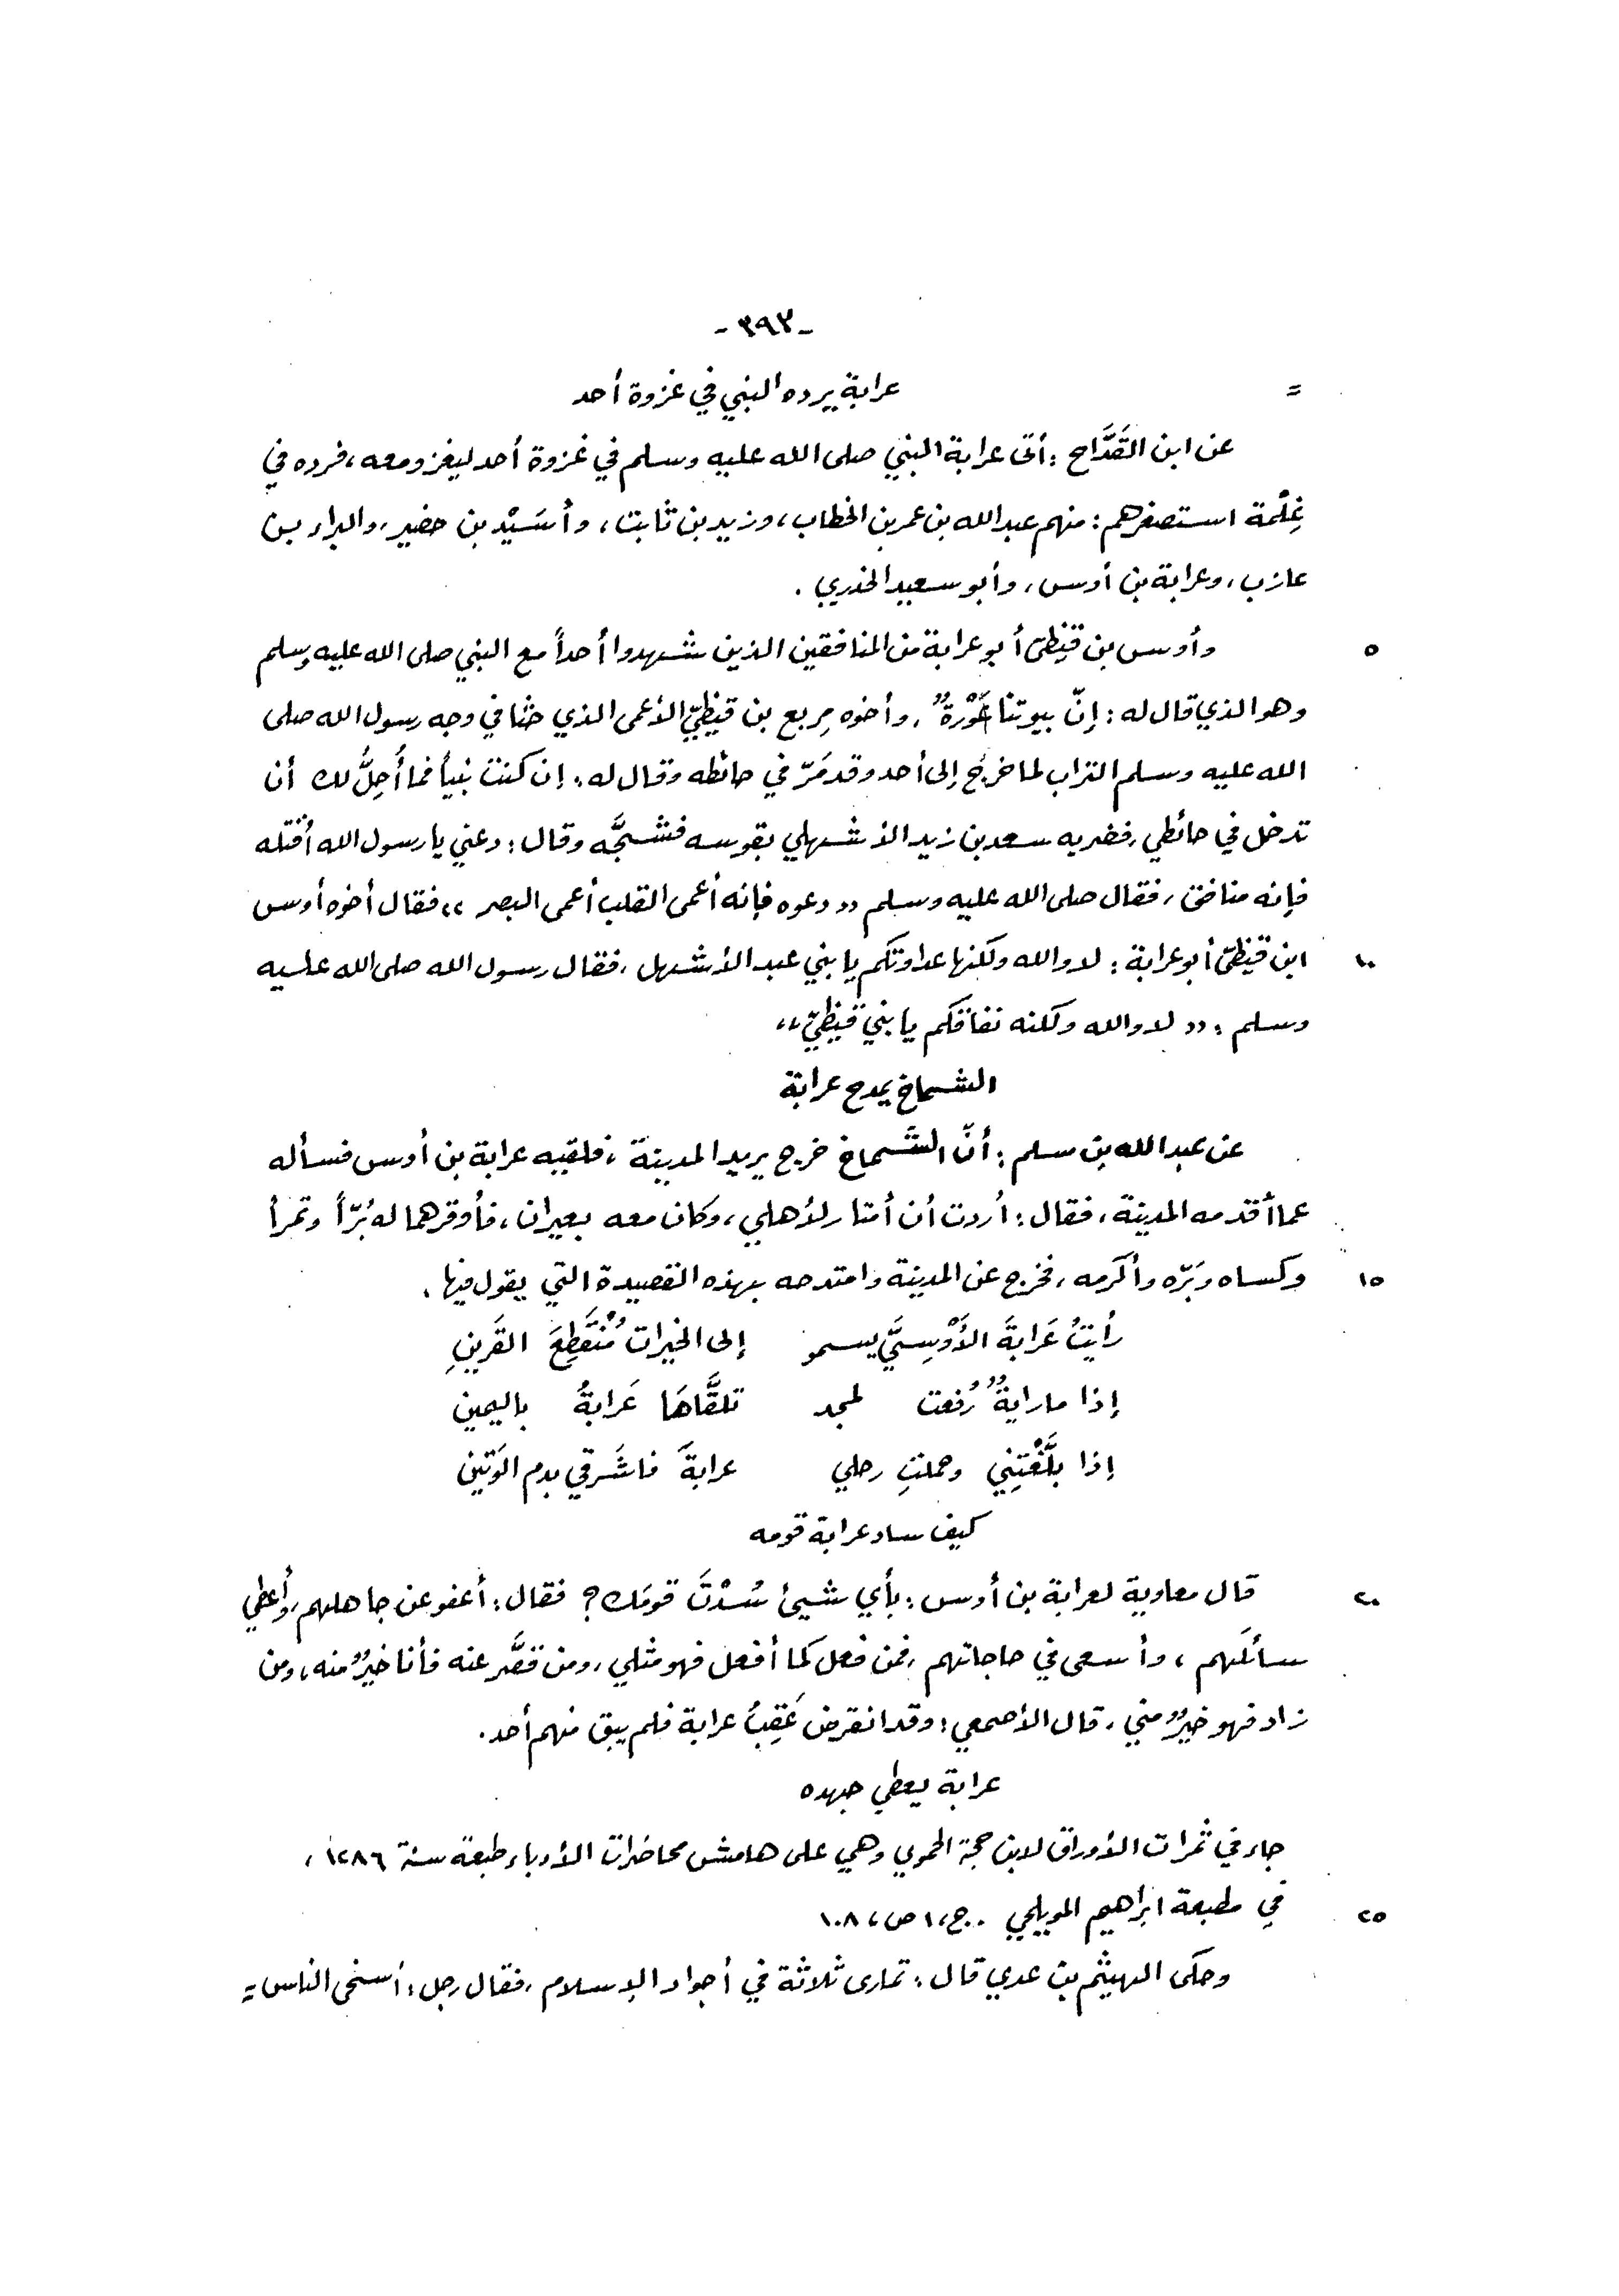 -٣٩٣-
= عرابة يرده النبي في غزوة أحد
عن ابن القَدَّاح : أتى عرابة النبي صلى الله عليه وسلم في غزوة أحد ليغزو معه ، فرده في
غِلْمة استصغرهم : منهم عبد الله بن عمر بن الخطاب ، وزيد بن ثابت ، وأسَيْد بن حضير ، والبراء بن
عازب ، وعرابة بن أوس ، وأبو سعيد الخدري .
٥ وأوس بن قيظيّ أبو عرابة من المنافقين الذين شهدوا أحداً مع النبي صلى الله عليه وسلم
وهو الذي قال له : إنّ بيوتنا عَوْرةٌ ، وأخوه مِربع بن قيظيّ الأعمى الذي حثا في وجه رسول الله صلى
الله عليه وسلم التراب لما خرج إلى أحد وقد مَرّ في حائطه وقال له : إن كنت نبياً فما أُحِلُّ لك أن
تدخل في حائطي ، فضربه سعد بن زيد الأشهلي بقوسه فشجَّه وقال : دعني يا رسول الله أقتله
فإنه منافق ، فقال صلى الله عليه وسلم (( دعوه فإنه أعمى القلب أعمى البصر )) فقال أخوه أوس
١٠ ابن قيظيّ أبو عرابة : لا والله ولكنها عداوتكم يا بني عبد الأشهل ، فقال رسول الله صلى الله عليه
وسلم : (( لا والله ولكنه نفاقكم يا بني قيظيّ ))
الشماخ يمدح عرابة
عن عبد الله بن سلم : أنّ الشَّماخ خرج يريد المدينة ، فلقيه عرابة بن أوس فسأله
عما أقدمه المدينة ، فقال : أردت أن أمتار لأهلي ، وكان معه بعيران ، فأوقرهما له بُرّاً وتمراً
١٥ وكساه وبَرّه وأكرمه ، فخرج عن المدينة وامتدحه بهذه القصيدة التي يقول فيها .
رأيتُ عَرابةَ الأَوْسِيَّ يسمو إلى الخيرات مُنْقَطِعَ القَرينِ
إذا ما رايةٌ رُفعت لمجد تلقَّاهَا عَرابةُ باليمين
إذا بلَّغْتِني وحملتِ رحلي عرابةَ فاشرَقي بدم الوَتين
كيف ساد عرابة قومه
٢٠ قال معاوية لعرابة بن أوس : بأي شيئ سُدْتَ قومَك ؟ فقال : أعفو عن جاهلهم ، وأُعطي
سائلَهم ، وأسعى في حاجاتهم ، فمن فعل كما أفعل فهو مثلي ، ومن قصَّر عنه فأنا خيرٌ منه ، ومن
زاد فهو خيرٌ مني ، قال الأصمعي : وقد انقرض عَقِبُ عرابة فلم يبق منهم أحد .
عرابة يعطي جهده
جاء في ثمرات الأوراق لابن حجة الحموي وهي على هامش محاضرات الأدباء طبعة سنة ١٢٨٦ ،
٢٥ في مطبعة ابراهيم المويلحي . ج ، ١ ص ، ١٠٨
وحكى الهيثم بن عدي قال : تمارى ثلاثة في أجواد الإسلام ، فقال رجل : أسخى الناس =